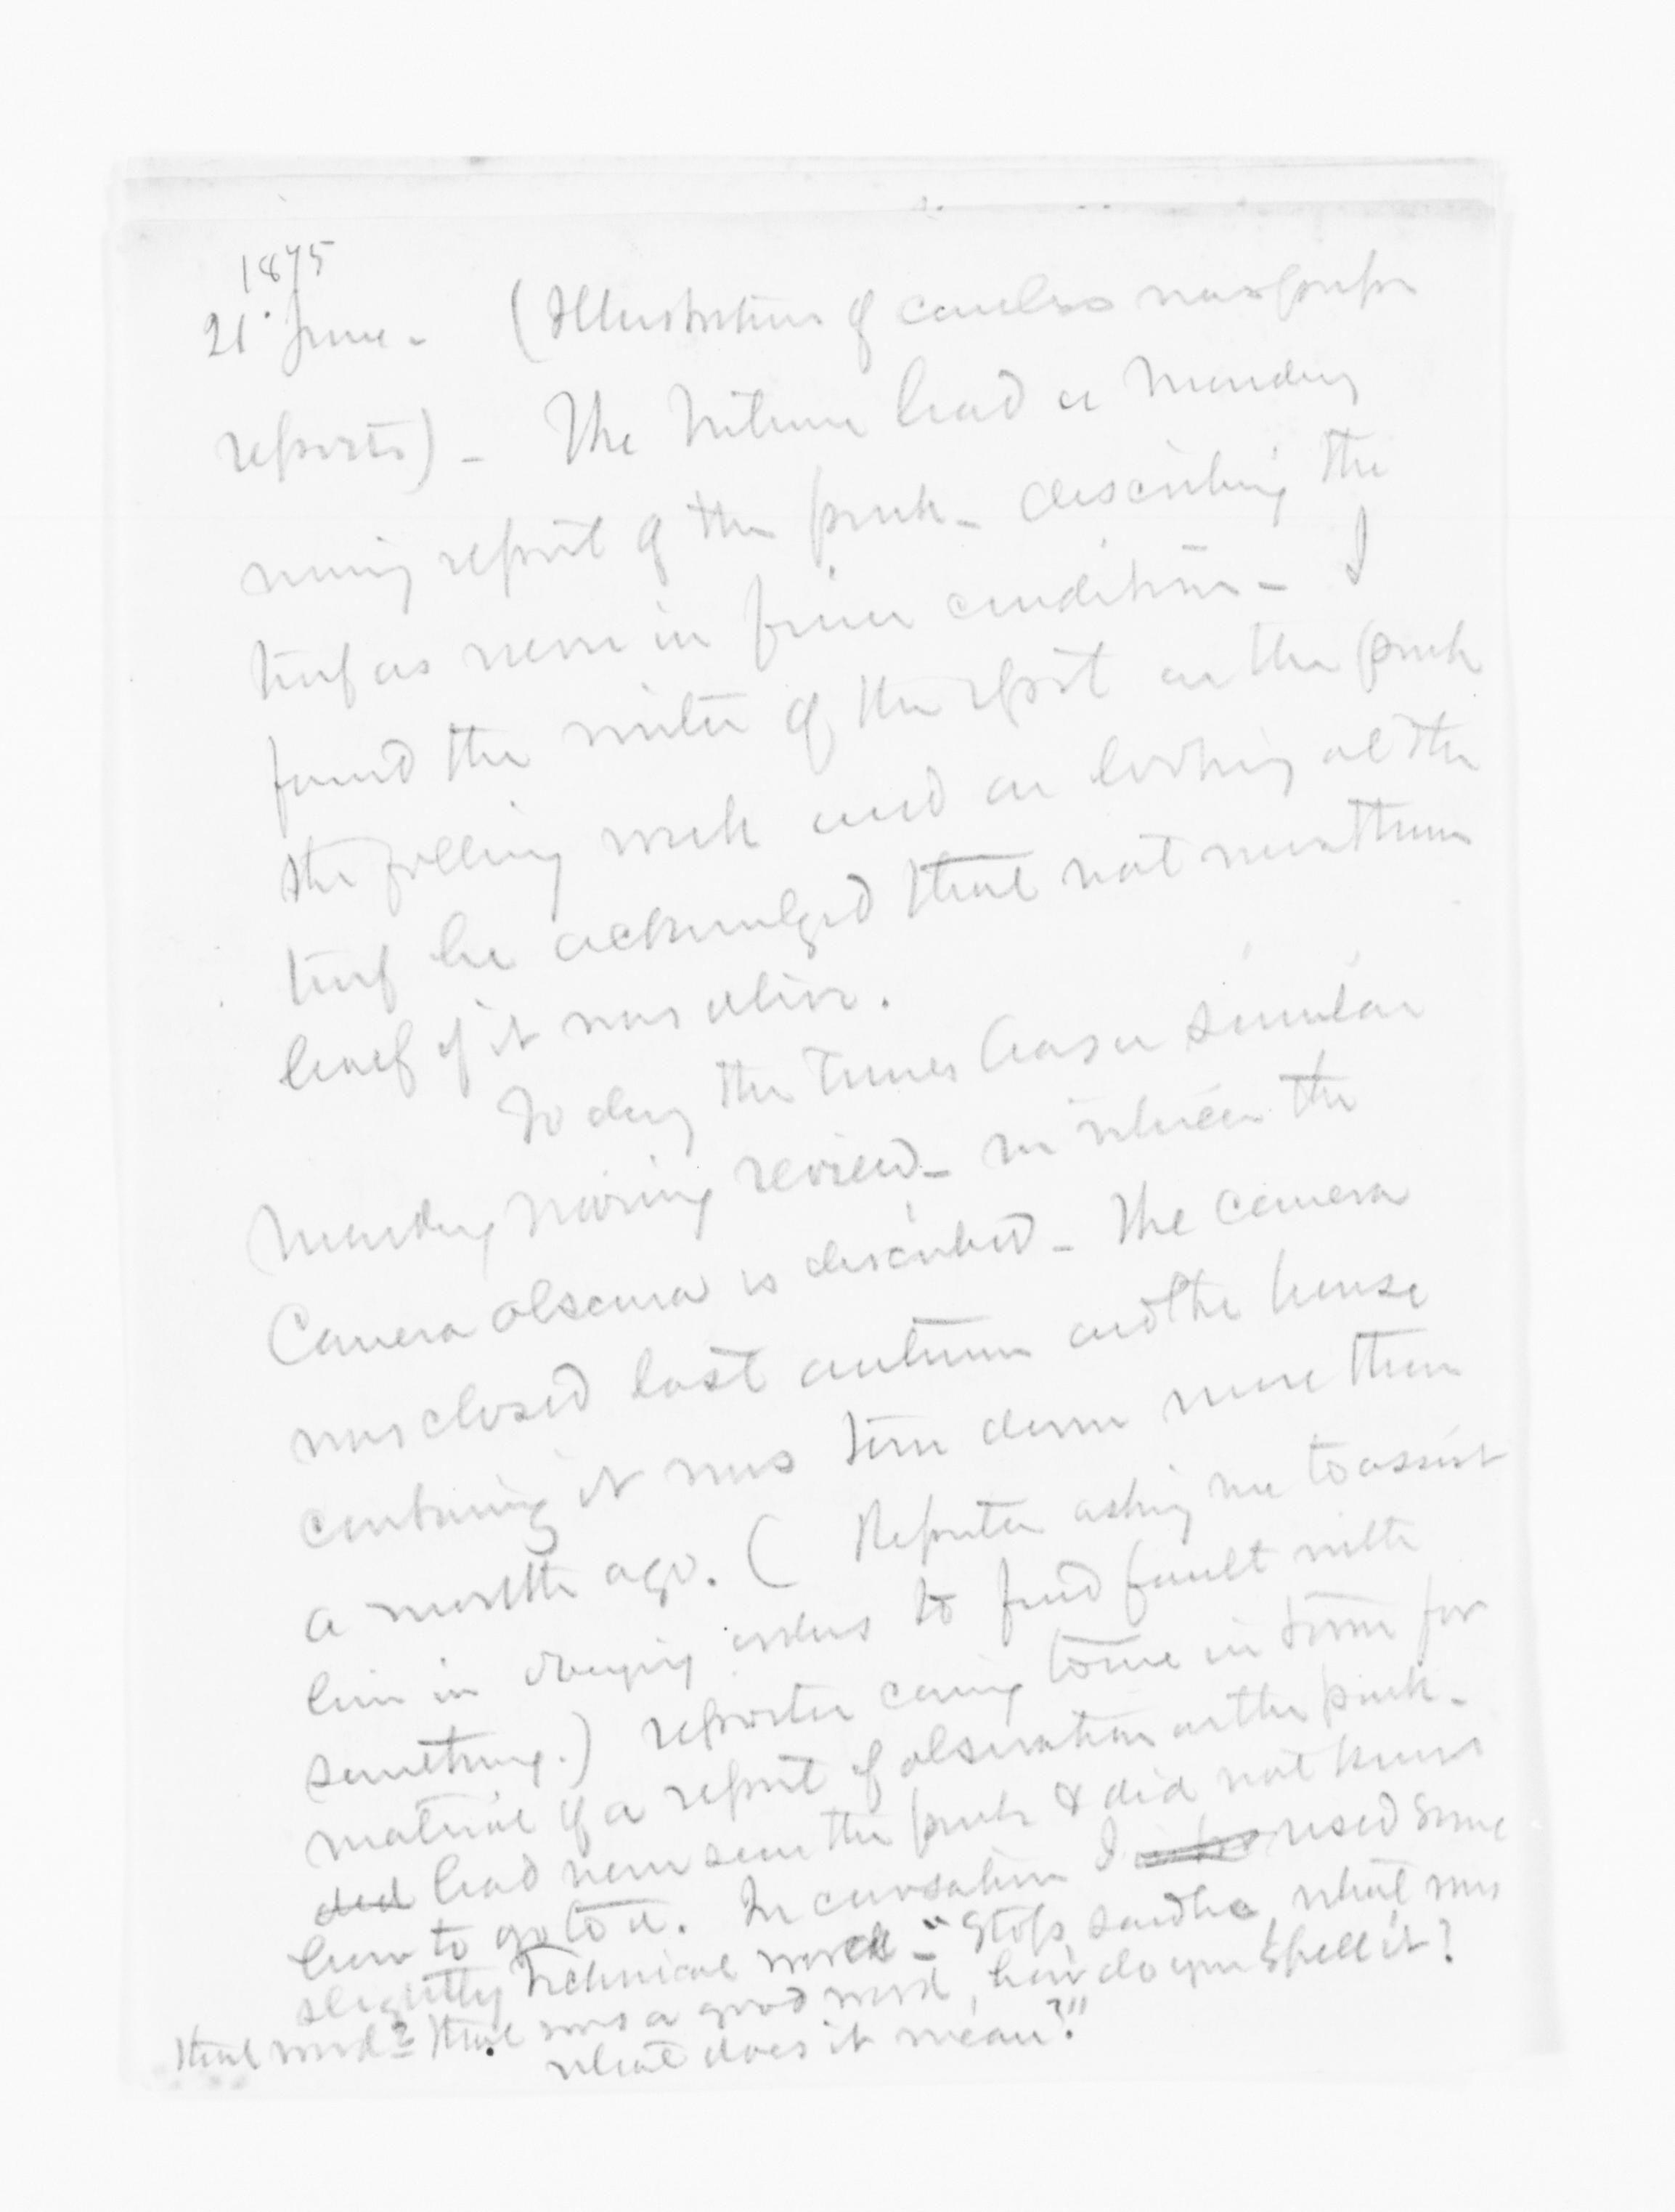 1875
21 June. (Illustration of careless newspaper
reports) - The Tribune had a Monday
morning report of the park - describing the
turf as never in finer condition - I
found the writer of the report on the park
the following week and on looking at the
turf he acknowledged that not more than
half of it was alive.
Today the Times has a similar
Monday morning review - in which the
Camera obscura is described - The camera
was closed last autumn and the house
containing it was torn down more than
a month ago. ( Reporter asking me to assist
him in obeying orders to find fault with
something.) reporter coming to me in town for
material of a report of observation on the park -
did had never seen the park & did not know
how to go to it. In conversation I used some
slightly technical word - "Stop, said he, what was
that word? that was a good word, how do you spell it?
what does it mean?"